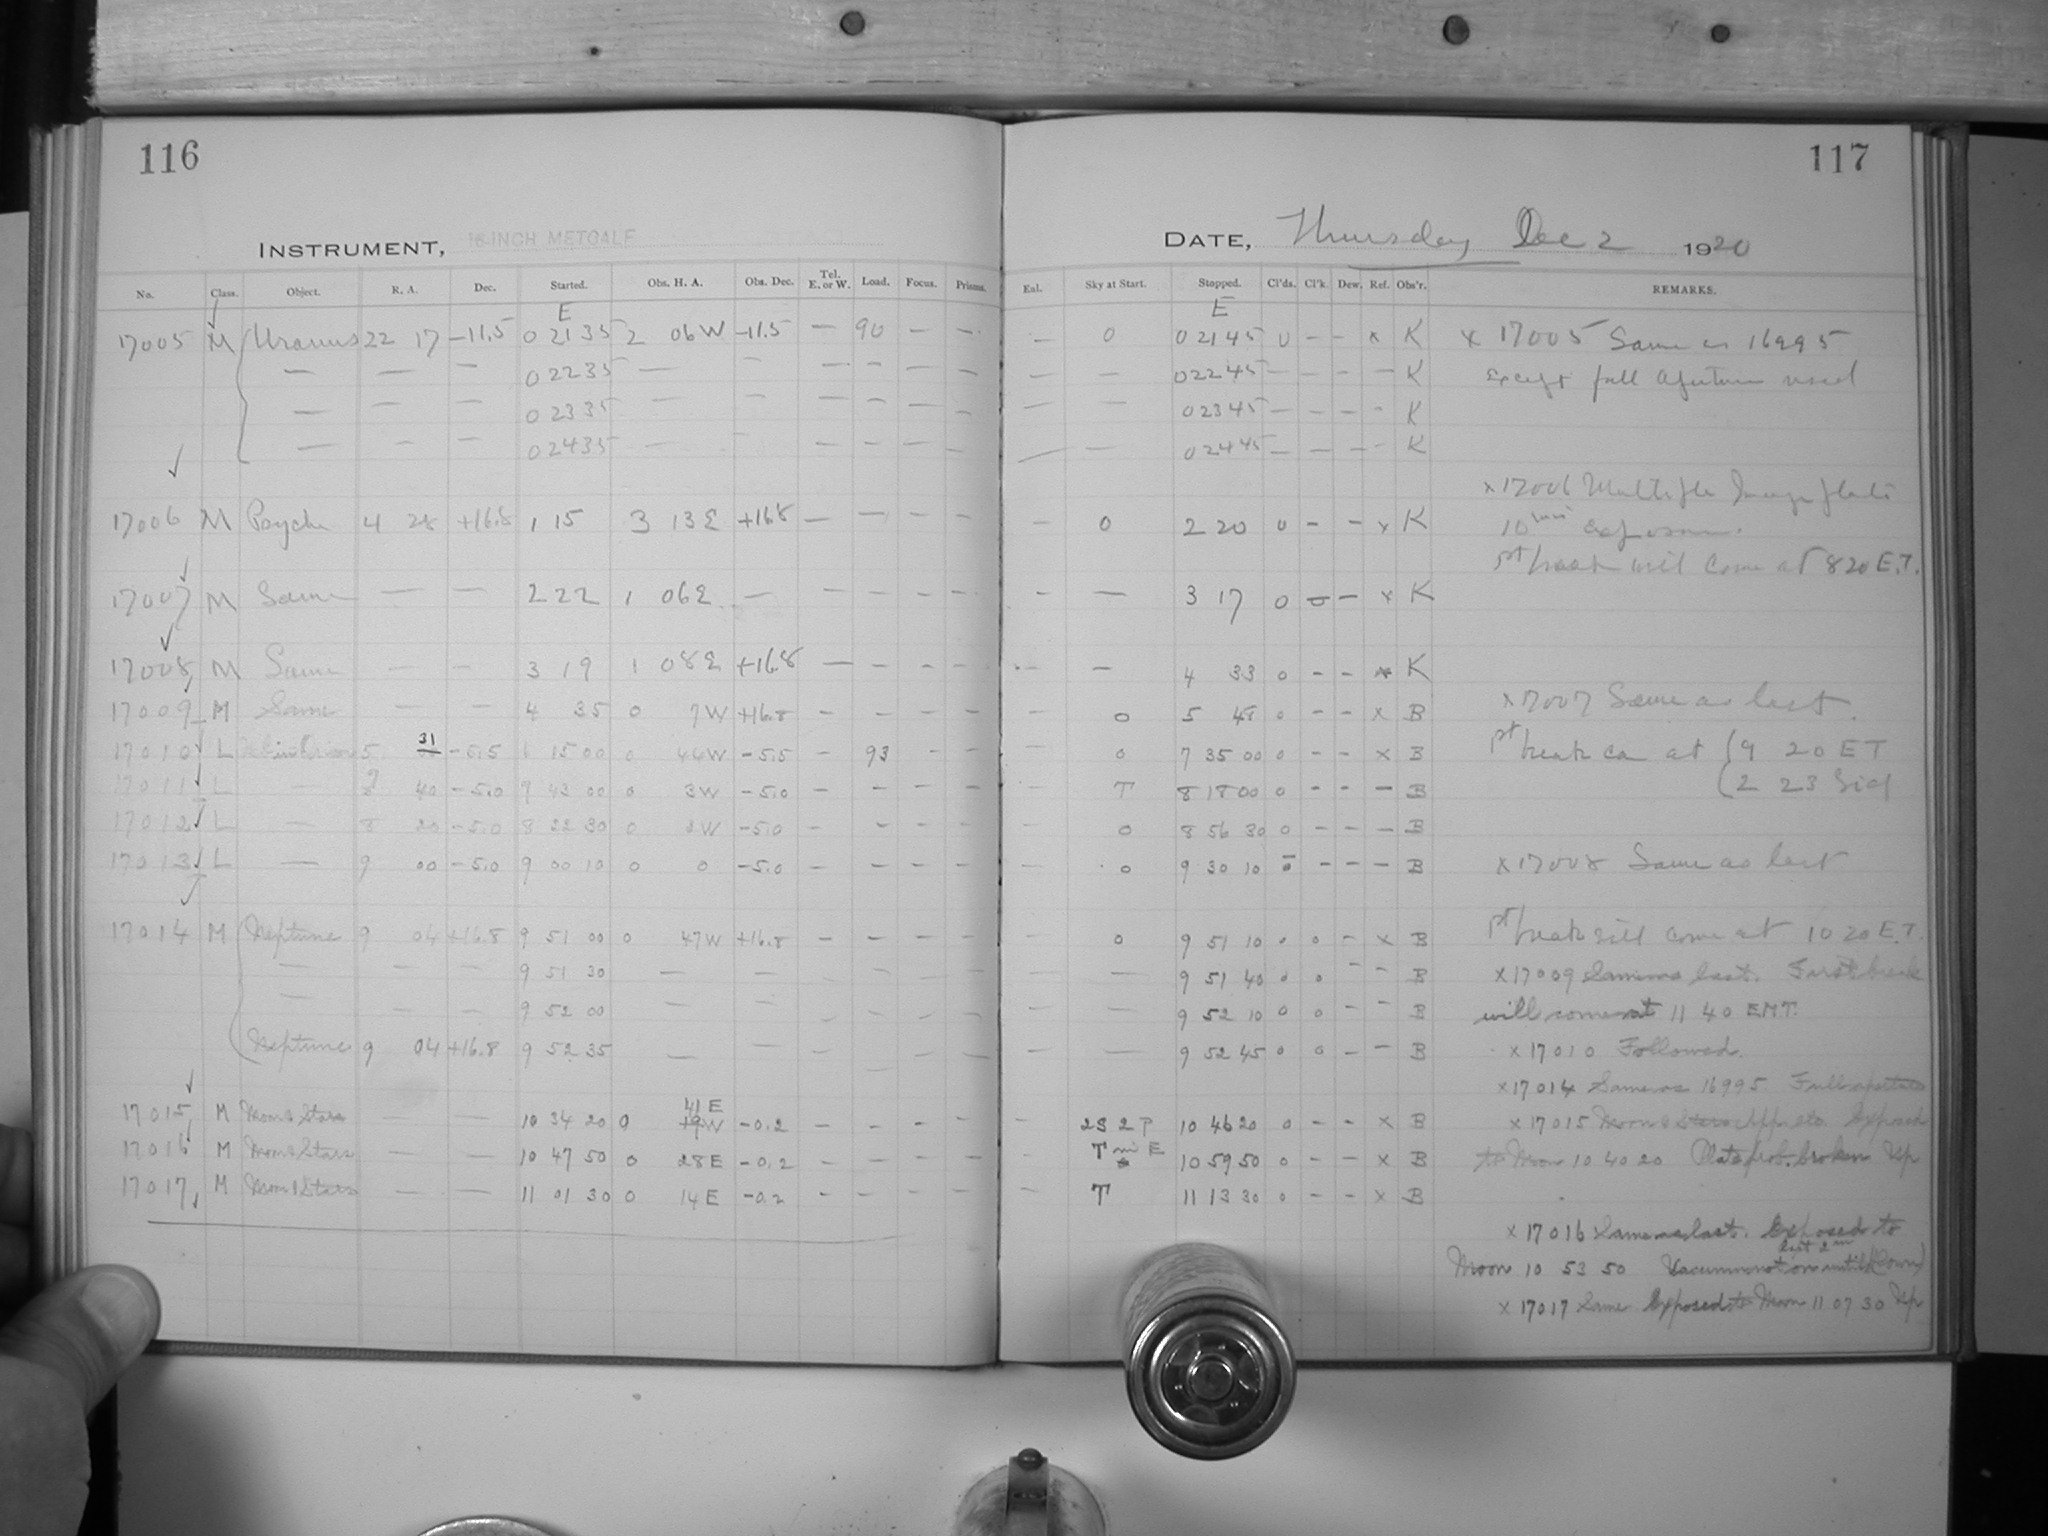 116
INSTRUMENT, 16-INCH METCALF
No. Class. Object. R. A. Dec. Started. Obs. H. A. Obs. Dec. Tel. E. or W. Load. Focus. Prisms.
E
17005 M Uranus 22 17 -11.5 0 21 35 2 06 W -11.5 — 90 — —
— — — 0 22 35 — — — — — —
— — — 0 23 35 — — — — — —
— — — 0 24 35 — — — — — —
17006 M Psyche 4 28 +16.8 1 15 3 13 E +16.8 — — — —
17007 M Same — — 2 22 1 06 E — — — — —
17008 M Same — — 3 19 1 08 E +16.8 — — — —
17009 M Same — — 4 35 0 7 W +16.8 — — — —
17010 L 5 31 -5.5 15 00 0 44 W -5.5 — 93 — —
17011 L — 40 -5.0 43 00 0 3 W -5.0 — — — —
17012 L — 8 20 -5.0 8 22 30 0 2 W -5.0 — — — —
17013 L — 9 00 -5.0 9 00 10 0 0 -5.0 — — — —
17014 M Neptune 9 04 +16.8 9 51 00 0 47 W +16.8 — — — —
— — — 9 51 30 — — — — — —
— — — 9 52 00 — — — — — —
Neptune 9 04 +16.8 9 52 35 — — — — — —
41 E
17015 M Moon & Stars — — 10 34 20 0 19 W -0.2 — — — —
17016 M Moon & Stars — — 10 47 50 0 28 E -0.2 — — — —
17017 M Moon & Stars — — 11 01 30 0 14 E -0.2 — — — —
117
DATE, Thursday Dec 2 1920
Enl. Sky at Start. Stopped. Cl'ds. Cl'k. Dew. Ref. Obs'r. REMARKS.
E
— 0 0 21 45 0 — — x K x 17005 Same as 16995
— — 0 22 45 — — — — K except full aperture used
— — 0 23 45 — — — — K
— — 0 24 45 — — — — K
x 17006 Multiple Image plate
— 0 2 20 0 — — x K 10 min exposures.
1st break will come at 8 20 E.T.
— — 3 17 0 — — x K
— — 4 33 0 — — x K
x 17007 Same as last.
0 5 48 0 — — x B
— 0 7 35 00 0 — — x B 1st break at (9 20 E T
— T 8 18 00 0 — — — B (2 23 Sid
— 0 8 56 30 0 — — — B
— 0 9 30 10 0 — — — B x 17008 Same as last
— 0 9 51 10 0 0 — x B 1st break will come at 10 20 E.T.
— — 9 51 40 0 0 — — B x 17009 Same as last. First break
— — 9 52 10 0 0 — — B will come at 11 40 E.M.T.
— — 9 52 45 0 0 — — B x 17010 Followed.
x 17014 Same as 16995 Full aperture
— 2S 2P 10 46 20 0 — — x B x 17015 Moon & Stars Exposed
— T E 10 59 50 0 — — x B to Moon 10 40 20 Plate prob. broken Up
— T 11 13 30 0 — — x B
x 17016 Same as last. Exposed to
last 2 m
Moon 10 53 50 Vacuum not on until (Down)
x 17017 Same Exposed to Moon 11 07 30 Up